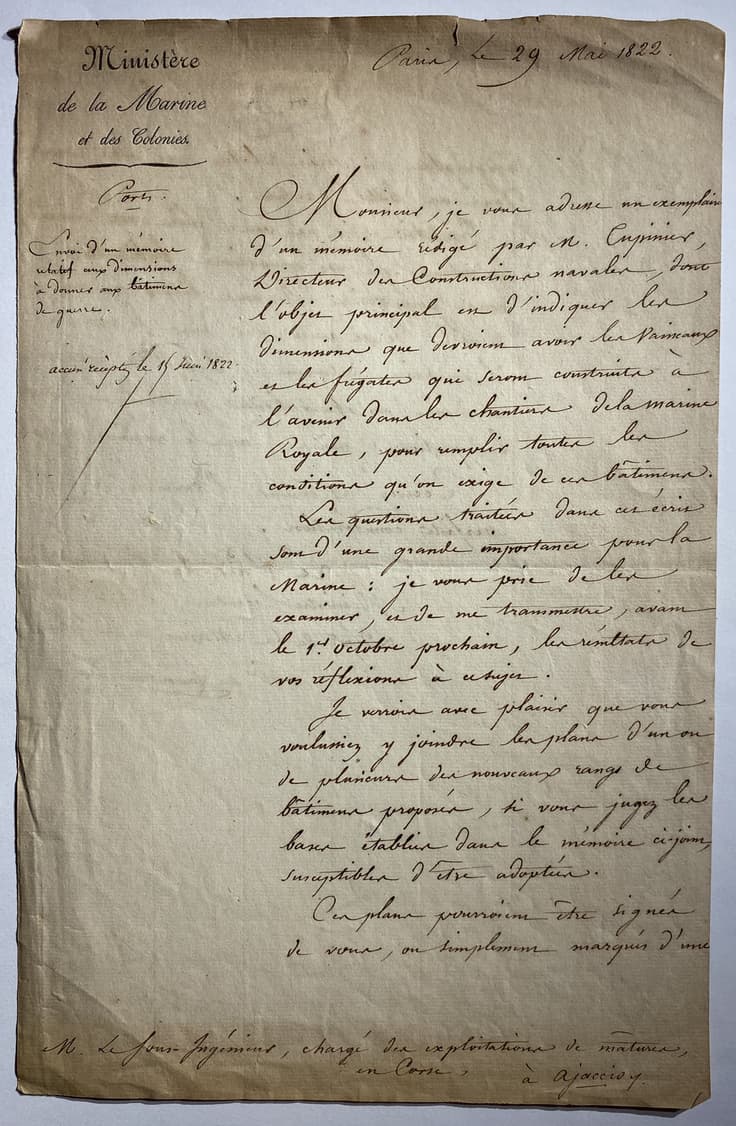 Ministère
de la Marine
et des Colonies.
Paris, Le 29 Mai 1822.
Ports.
Envoi d'un mémoire
relatif aux dimensions
à donner aux bâtimens
de guerre.
accusé récepté le 15 Juin 1822
Monsieur, je vous adresse un exemplaire
d'un mémoire rédigé par M. Tupinier,
Directeur des Constructions navales, dont
l'objet principal est d'indiquer les
dimensions que devroient avoir les Vaisseaux
et les frégates qui seront construits à
l'avenir dans les chantiers de la marine
Royale, pour remplir toutes les
conditions qu'on exige de ces bâtimens.
Les questions traitées dans cet écrit
sont d'une grande importance pour la
Marine : je vous prie de les
examiner, et de me transmettre, avant
le 1er. Octobre prochain, les résultats de
vos réflexions à ce sujet.
Je verrois avec plaisir que vous
voulussiez y joindre les plans d'un ou
de plusieurs des nouveaux rangs de
bâtimens proposés, si vous jugez les
bases établies dans le mémoire ci-joint,
susceptibles d'être adoptées.
Ces plans pourroient être signés
de vous, ou simplement marqués d'une
M. Le Sous-Ingénieur, chargé des exploitations de mâtures,
en Corse,
à Ajaccio